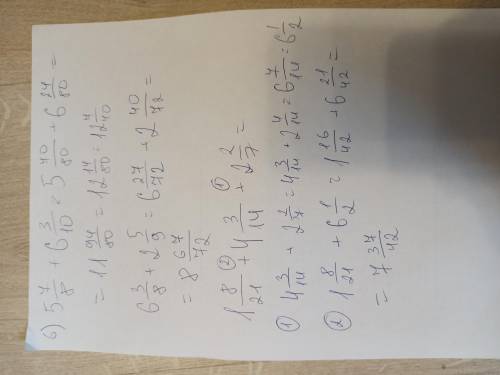 б) 5 7/8 + 6 3/10 = 5 70/80 + 6 24/80 =
= 11 94/80 = 12 14/80 = 12 7/40
6 3/8 + 2 5/9 = 6 27/72 + 2 40/72 =
= 8 67/72
② ①
1 8/21 + 4 3/14 + 2 2/7 =
① 4 3/14 + 2 2/7 = 4 3/14 + 2 4/14 = 6 7/14 = 6 1/2
② 1 8/21 + 6 1/2 = 1 16/42 + 6 21/42 =
= 7 37/42